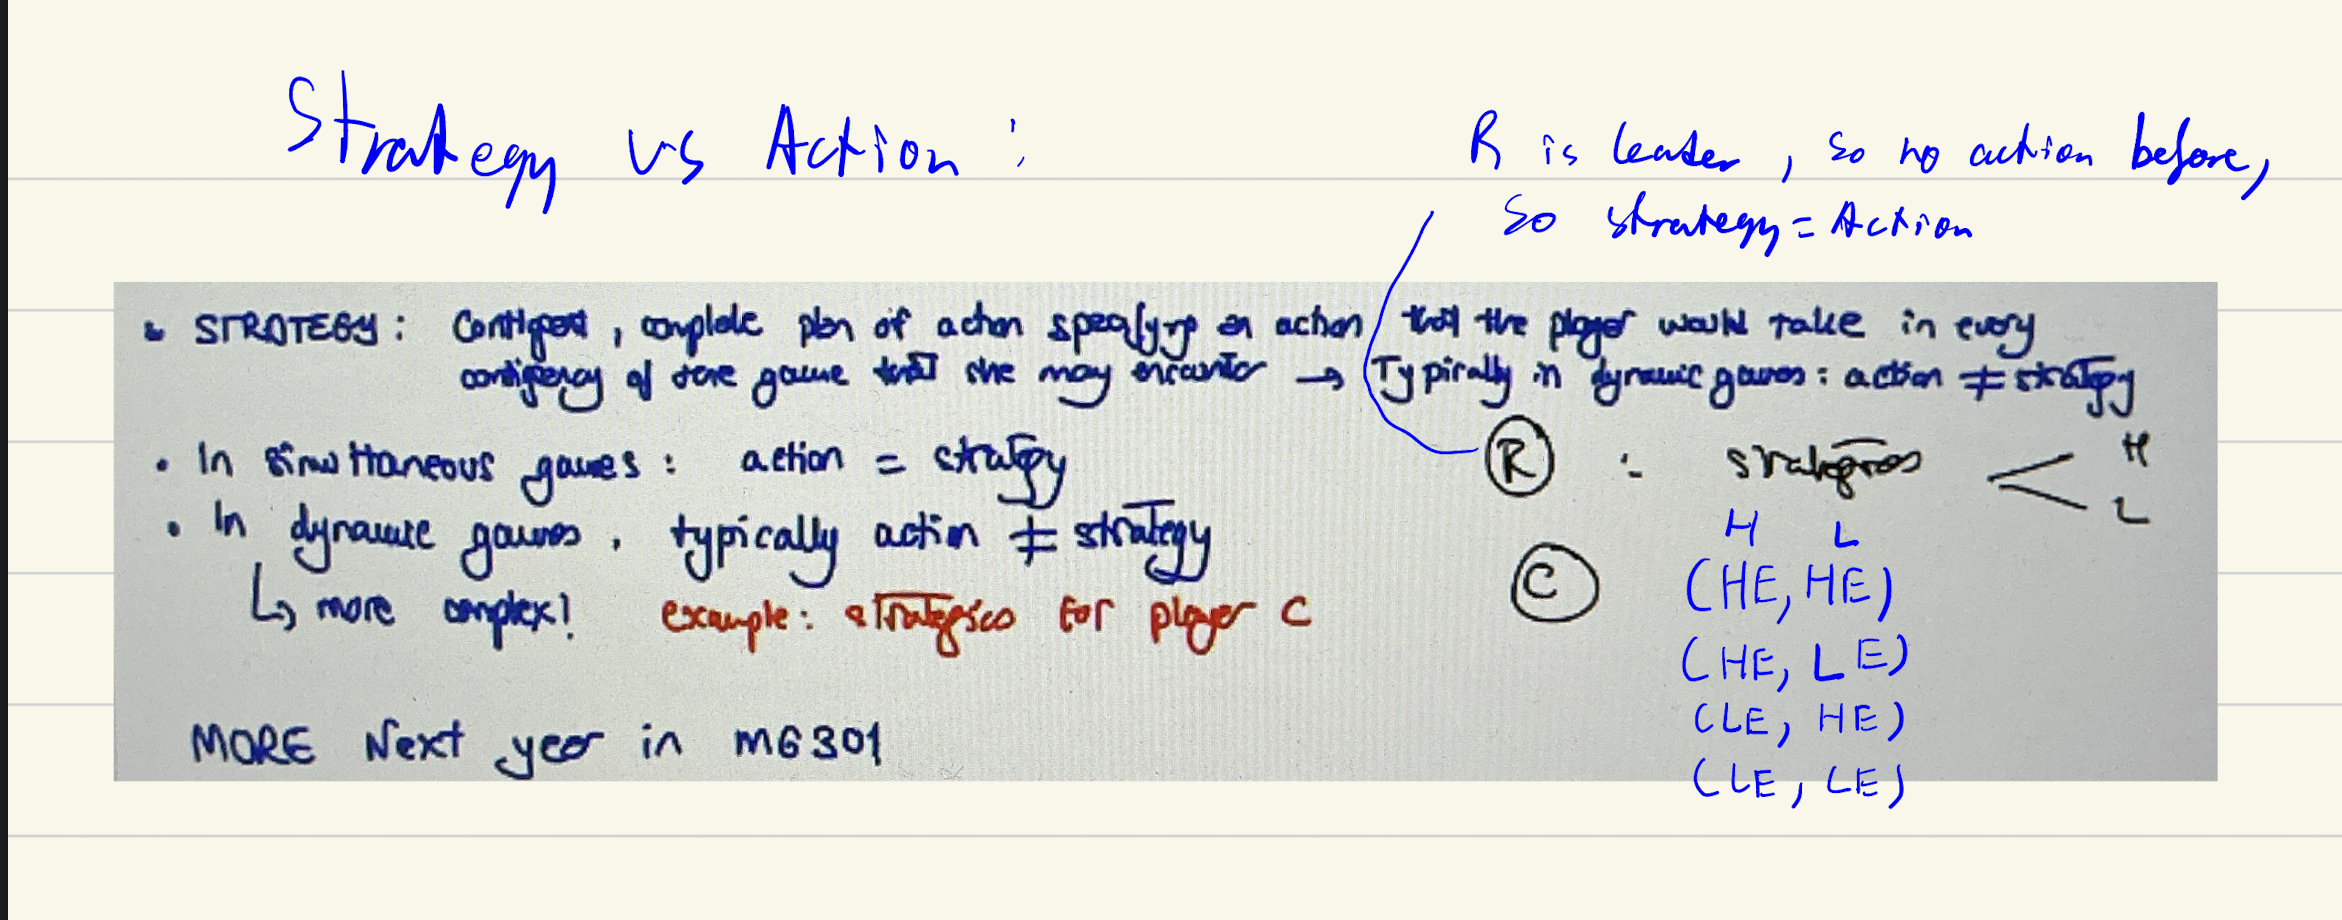 Strategy vs Action :
R is leader, so no action before,
so strategy = Action
• STRATEGY: Contigent, complete plan of action specifying an action that the player would take in every
contigency of the game that she may encounter → Typically in dynamic games: action ≠ strategy
• In simultaneous games: action = strategy
R : strategies < H
L
• In dynamic games, typically action ≠ strategy
H L
C (HE, HE)
↳ more complex! example: strategies for player C
(HE, LE)
(LE, HE)
MORE Next year in MG301
(LE, LE)